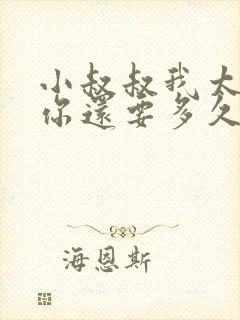 小叔叔我大
你還要多久
海恩斯